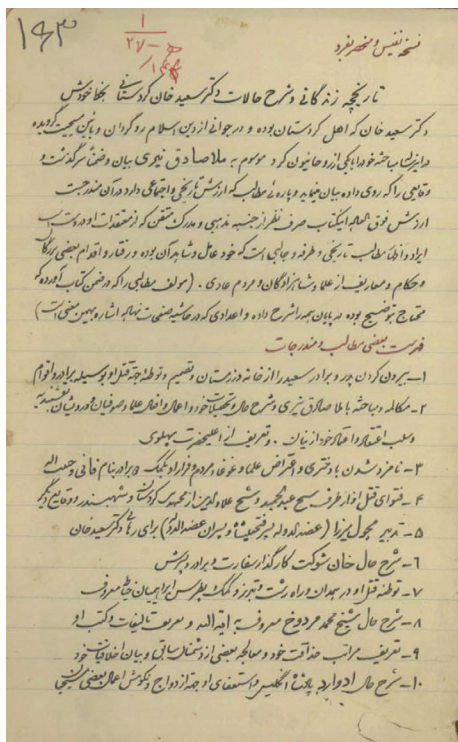 ۱۶۳
۱
۲۷
نسخه نفیس و منحصر بفرد
تاریخچه زندگانی و شرح حالات دکتر سعید خان کردستانی بخط خودش
دکتر سعید خان که اهل کردستان بوده و در جوانی از دین اسلام رو گردان و بدین مسیحیت گرویده
در این کتاب مباحثه خود را با یکی از روحانیون کرد موسوم به ملا صادق بیان و ضمناً سرگذشت و
وقایعی را که روی داده بیان مینماید و پاره ئی مطالب که ارزش تاریخی و اجتماعی دارد در آن مندرجست
ارزش فوق العاده این کتاب صرف نظر از جنبه مذهبی و مدرک متقن که از معتقدات او در دست است
ایراد و اظهار مطالب تاریخی و طرفه و جالبی است که خود عامل و شاهد آن بوده و رفتار و اقدام بعضی بزرگان
و حکام و معاریف از علما و شاهزادگان و مردم عادی . (مولف مطالبی را که در ضمن کتاب آورده که
محتاج بتوضیح بوده در پایان همه را شرح داده و اعدادی که در حاشیه صفحات نهاده اشاره بهمین معنی است)
فهرست بعضی مطالب و مندرجات
۱- بیرون کردن پدر و برادر سعید را از خانه در زمستان و تصمیم و توطئه جهة قتل او بوسیله برادر و اقوام
۲- مکالمه و مباحثه با ملا صادق و شرح حال و تحصیلات خود و اعمال و افعال علما و صوفیان و درویشان نقشبندیه
و سلب اعتقاد و اعتماد خود از آنان . و تعریف از اعلیحضرت پهلوی
۳- نامزد شدن با دختری و اعتراض علما و غوغاء مردم و فرار او بکمک برادر بنام فانی
۴- فتوای قتل او از طرف شیخ عبدالحمید و شیخ علاءالدین از مجتهدین کردستان و شهر سنندج و وقایع دیگر
۵- تدبیر میرزا (عضدالدوله پسر فتحعلیشاه و پسران عضدالدوله) برای رهائی دکتر سعید خان
۶- شرح حال خان شوکت کارگذار سفارت و برادر و پسرش
۷- توطئه قتل او در همدان و راه رشت و تبریز و کمک پطرس ابراهیمیان خیاط معروف
۸- شرح حال شیخ محمد مردوخ معروف به آیة الله و معرفت تالیفات و کتب او
۹- تعریف مراتب حذاقت خود و معالجه بعضی از دشمنان سابق و بیان اخلاقیات خود
۱۰- شرح حال ادوارد پادشاه انگلیس و استعفای او جهة ازدواج و نکوهش اعمال بعضی